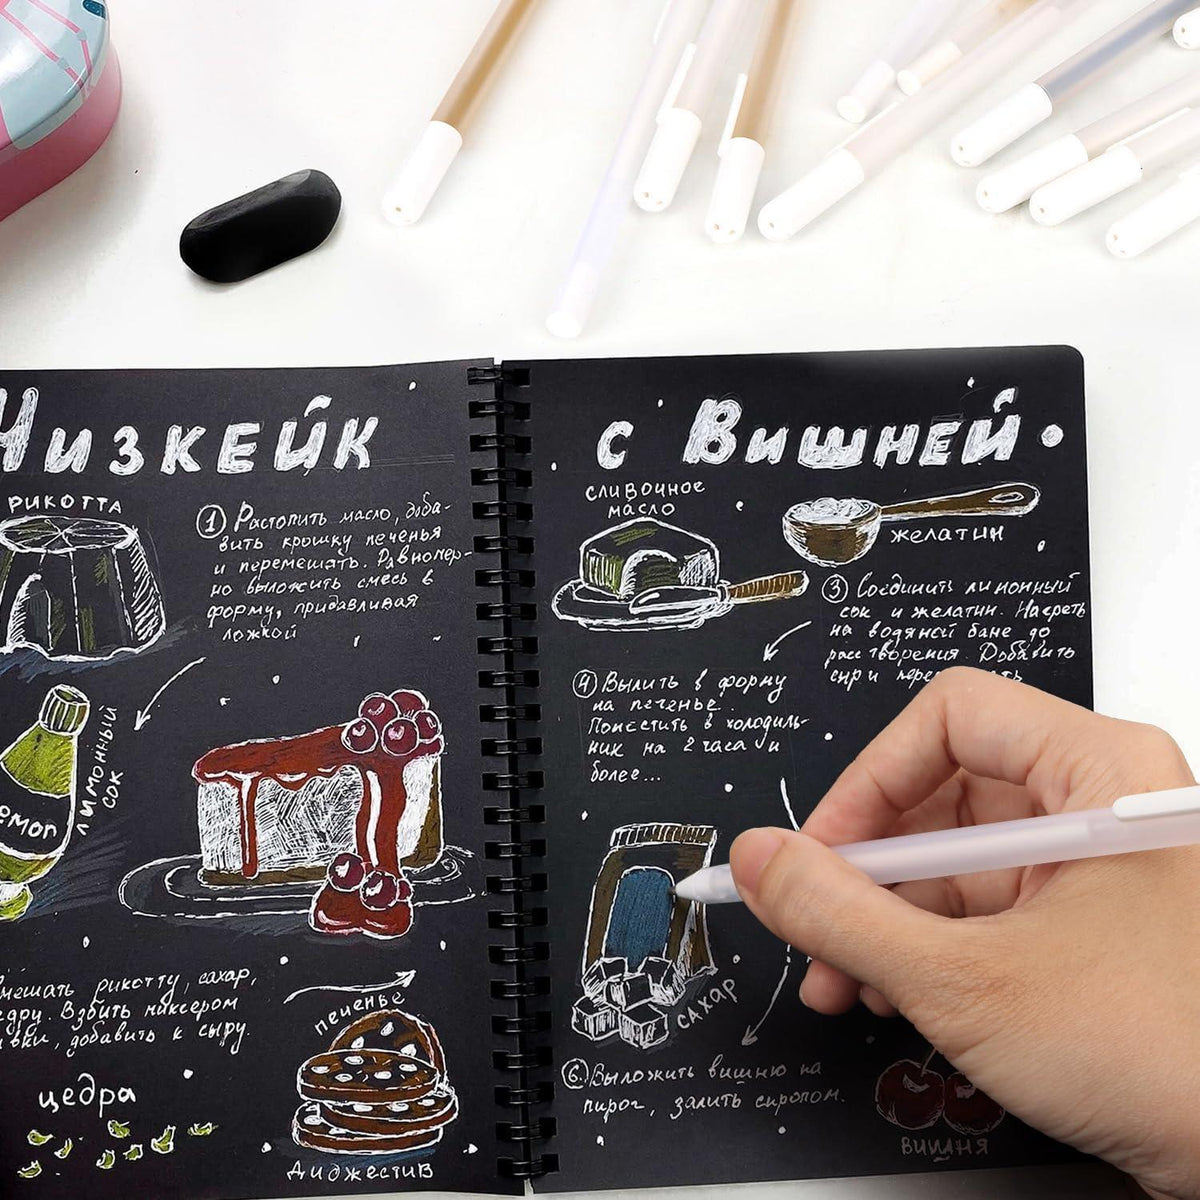 Чизкейк
с Вишней
рикотта
① Растопить масло, доба-
вить крошку печенья
и перемешать. Равномер-
но выложить смесь в
форму, придавливая
ложкой
лимонный
сок
рикотту, сахар,
Взбить миксером
добавить к сыру.
цедра
печенье
диджестив
сливочное
масло
желатин
③ Соединить лимонный
сок и желатин. Нагреть
на водяной бане до
растворения. Добавить
④ Вылить в форму
на печенье.
Поместить в холодиль-
ник на 2 часа и
более...
сахар
⑥ Выложить вишню на
пирог, залить сиропом.
вишня